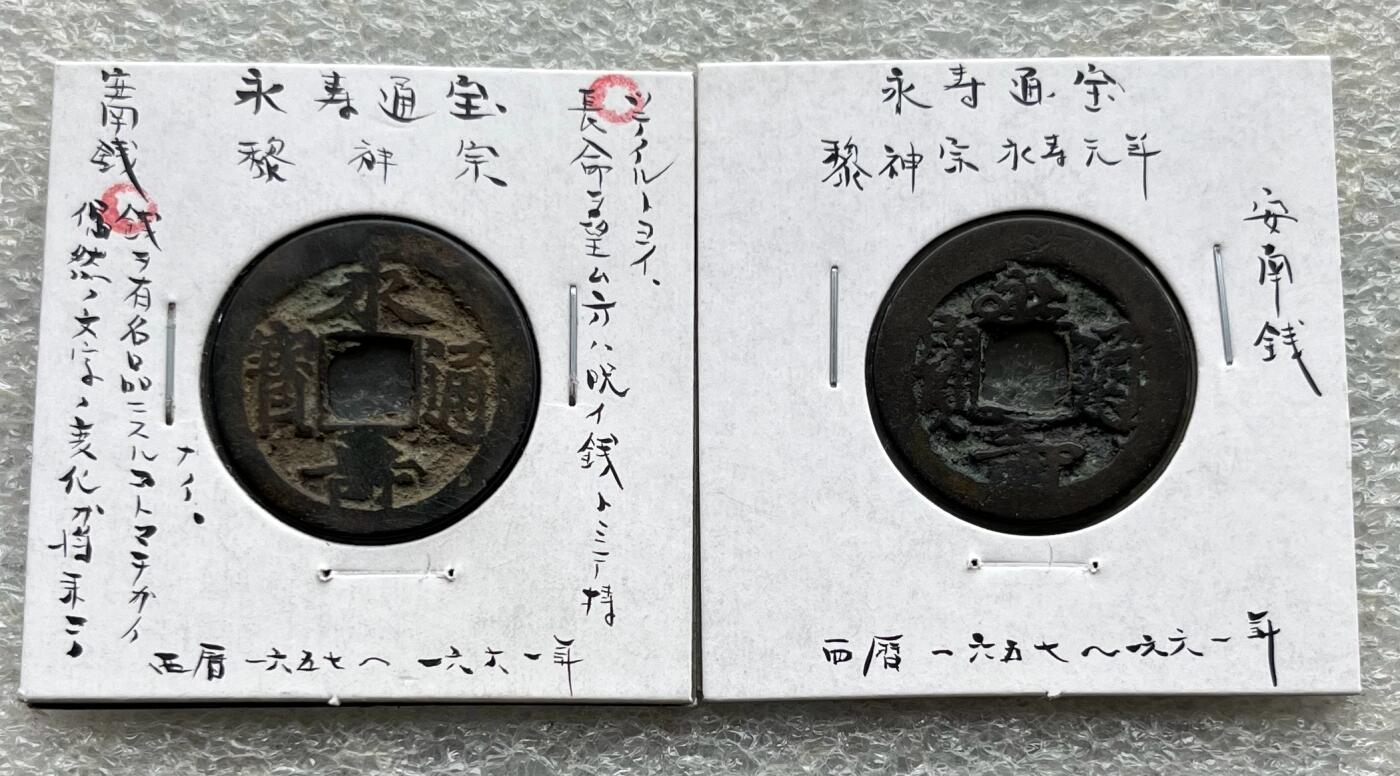 永寿通宝
黎神宗
安南銭
長命ヲ望ム方ハ呪イ銭トミニ持
ツテイルトヨイ、
偶然ノ文字ノ変化ガ将来コノ
銭ヲ有名品ニスルコトマチガイ
ナイ、
永
通
寶
西暦一六五七〜一六六一年
永寿通宝
黎神宗永寿元年
安南銭
西暦一六五七〜一六六一年